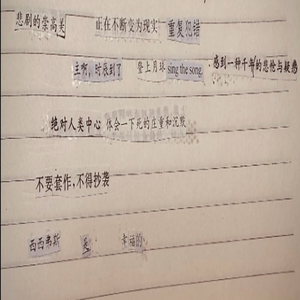 悲剧的崇高美 正在不断变为现实 重复犯错
主啊,时候到了 登上月球 sing the song. 感到一种千年的悲怆与疑惑
绝对人类中心 体会一下死的庄重和沉默
不要套作,不得抄袭
西西弗斯 是 幸福的